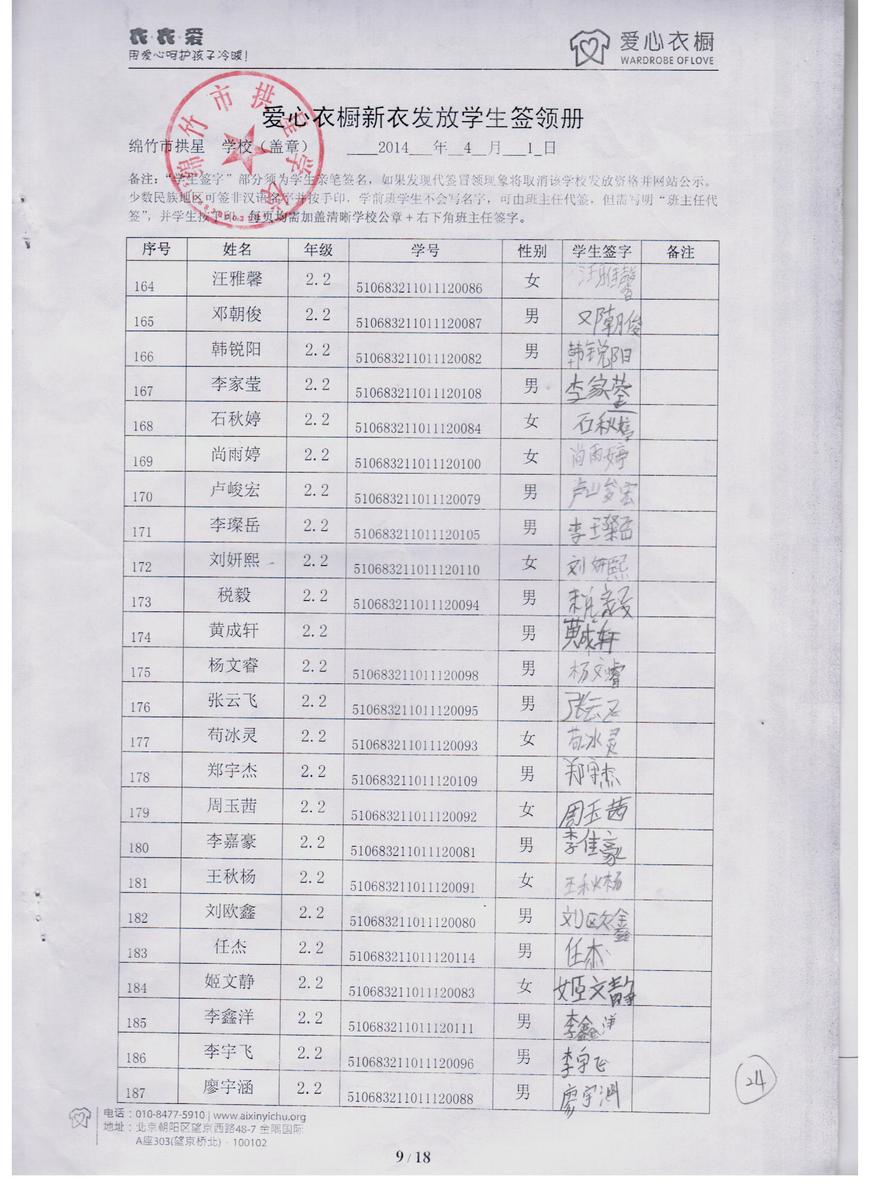 衣·衣·爱
用爱心呵护孩子冷暖!
爱心衣橱
WARDROBE OF LOVE
爱心衣橱新衣发放学生签领册
绵竹市拱星 学校（盖章） 2014 年 4 月 1 日
备注：“学生签字”部分须为学生亲笔签名，如果发现代签冒领现象将取消该学校发放资格并网站公示。
少数民族地区可签非汉语名字并按手印，学前班学生不会写名字，可由班主任代签，但需写明“班主任代
签”，并学生按手印。每页均需加盖清晰学校公章+右下角班主任签字。
序号 姓名 年级 学号 性别 学生签字 备注
164 汪雅馨 2.2 510683211011120086 女 汪雅馨
165 邓朝俊 2.2 510683211011120087 男 邓朝俊
166 韩锐阳 2.2 510683211011120082 男 韩锐阳
167 李家莹 2.2 510683211011120108 男 李家莹
168 石秋婷 2.2 510683211011120084 女 石秋婷
169 尚雨婷 2.2 510683211011120100 女 尚雨婷
170 卢峻宏 2.2 510683211011120079 男 卢峻宏
171 李璨岳 2.2 510683211011120105 男 李璨岳
172 刘妍熙 2.2 510683211011120110 女 刘妍熙
173 税毅 2.2 510683211011120094 男 税毅
174 黄成轩 2.2 男 黄成轩
175 杨文睿 2.2 510683211011120098 男 杨文睿
176 张云飞 2.2 510683211011120095 男 张云飞
177 苟冰灵 2.2 510683211011120093 女 苟冰灵
178 郑宇杰 2.2 510683211011120109 男 郑宇杰
179 周玉茜 2.2 510683211011120092 女 周玉茜
180 李嘉豪 2.2 510683211011120081 男 李佳豪
181 王秋杨 2.2 510683211011120091 女 王秋杨
182 刘欧鑫 2.2 510683211011120080 男 刘欧鑫
183 任杰 2.2 510683211011120114 男 任杰
184 姬文静 2.2 510683211011120083 女 姬文静
185 李鑫洋 2.2 510683211011120111 男 李鑫洋
186 李宇飞 2.2 510683211011120096 男 李宇飞
187 廖宇涵 2.2 510683211011120088 男 廖宇涵
24
电话：010-8477-5910 | www.aixinyichu.org
地址：北京朝阳区望京西路48-7 金隅国际
A座303(望京桥北) · 100102
9 / 18